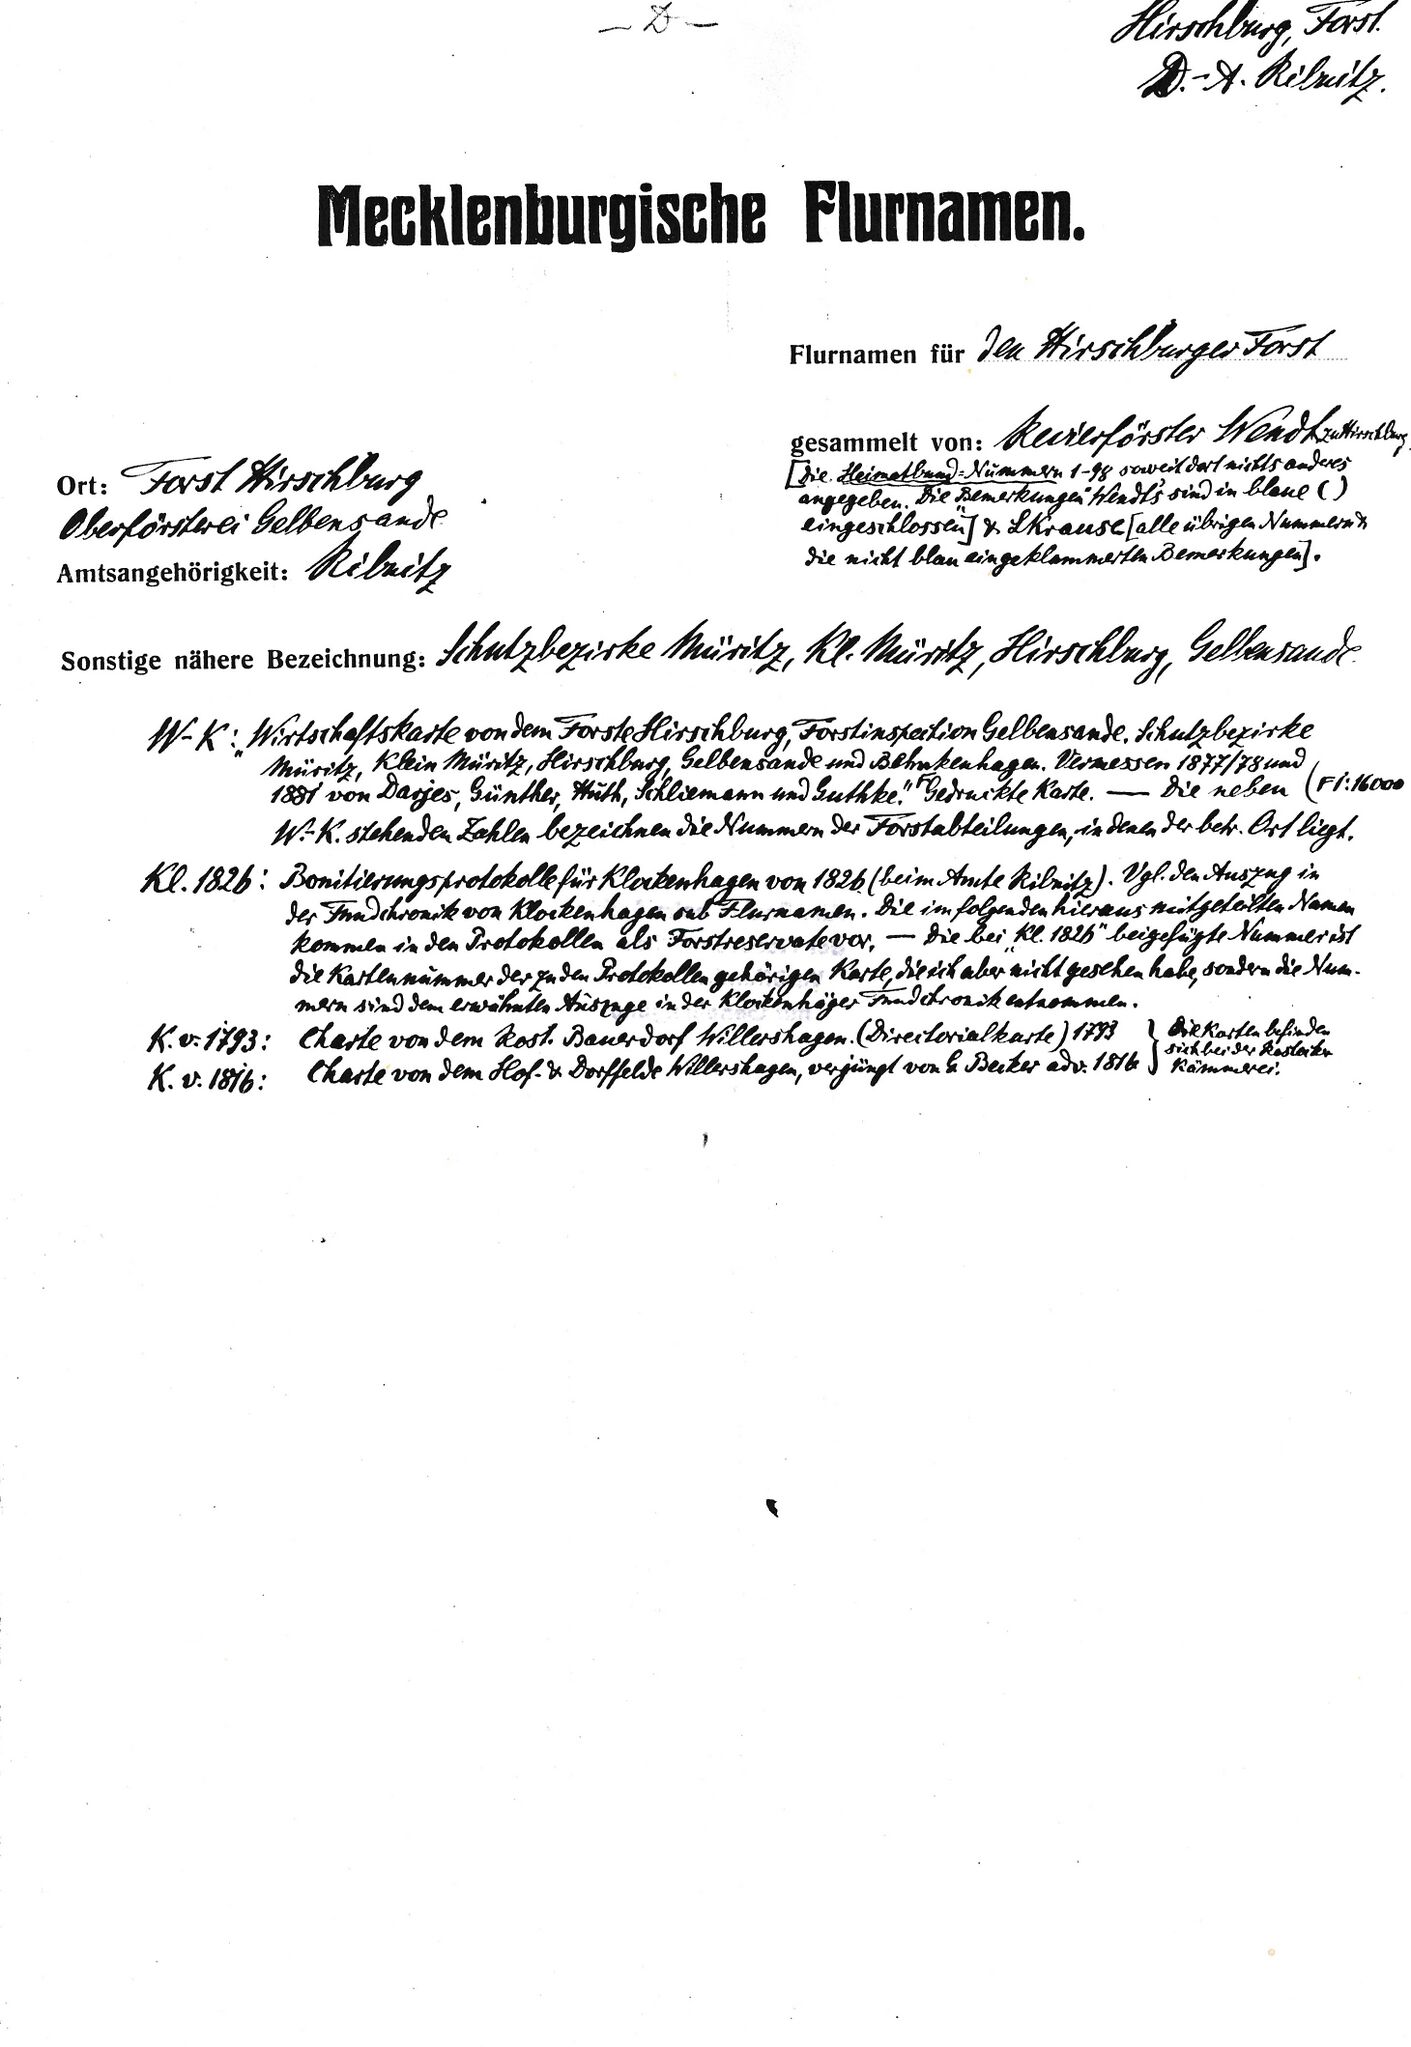 — D —
Hirschburg, Forst.
D.-A. Ribnitz.
Mecklenburgische Flurnamen.
Flurnamen für den Hirschburger Forst
gesammelt von: Revierförster Wendt zu Hirschburg
[Die Heimatbund-Nummern 1-98 soweit dort nichts anderes
angegeben. Die "Bemerkungen" Wendts sind in blaue ( )
eingeschlossen] & LKrause [alle übrigen Nummern &
die nicht blau eingeklammerten Bemerkungen].
Ort: Forst Hirschburg
Oberförsterei Gelbensande
Amtsangehörigkeit: Ribnitz
Sonstige nähere Bezeichnung: Schutzbezirke Müritz, Kl. Müritz, Hirschburg, Gelbensande
W-K: „Wirtschaftskarte von dem Forste Hirschburg, Forstinspection Gelbensande. Schutzbezirke
Müritz, Klein Müritz, Hirschburg, Gelbensande und Behnkenhagen. Vermessen 1877/78 und
1881 von Darjes, Günther, Huth, Schliemann und Guthke." Gedruckte Karte. — Die neben (1:16000
W.-K. stehenden Zahlen bezeichnen die Nummern der Forstabteilungen, in denen der betr. Ort liegt.
Kl. 1826: Bonitierungsprotokolle für Klockenhagen von 1826 (beim Amte Ribnitz). Vgl. den Auszug in
der Fundchronik von Klockenhagen sub Flurnamen. Die im folgenden hieraus mitgeteilten Namen
kommen in den Protokollen als Forstreservate vor. — Die bei „Kl. 1826" beigefügte Nummer ist
die Kartennummer der zu den Protokollen gehörigen Karte, die ich aber nicht gesehen habe, sondern die Num-
mern sind dem erwähnten Auszuge in der Klockenhäger Fundchronik entnommen.
K. v. 1793: Charte von dem Rost. Bauerdorf Willershagen. (Directorialkarte) 1793 } Die Karten befinden
sich bei der Rostocker
K. v. 1816: Charte von dem Hof- & Dorffelde Willershagen, verjüngt von G Becker adv. 1816 } Kämmerei.